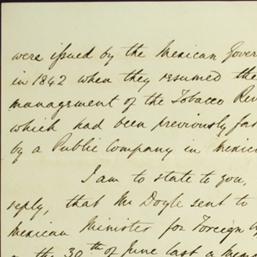 were issued by the Mexican Gover
in 1842 when they resumed the
management of the Tobacco Rev
which had been previously fa
by a Public Company in mexic
I am to state to you,
reply, that Mr Doyle sent to
mexican Minister for Foreign
the 30th of June last a